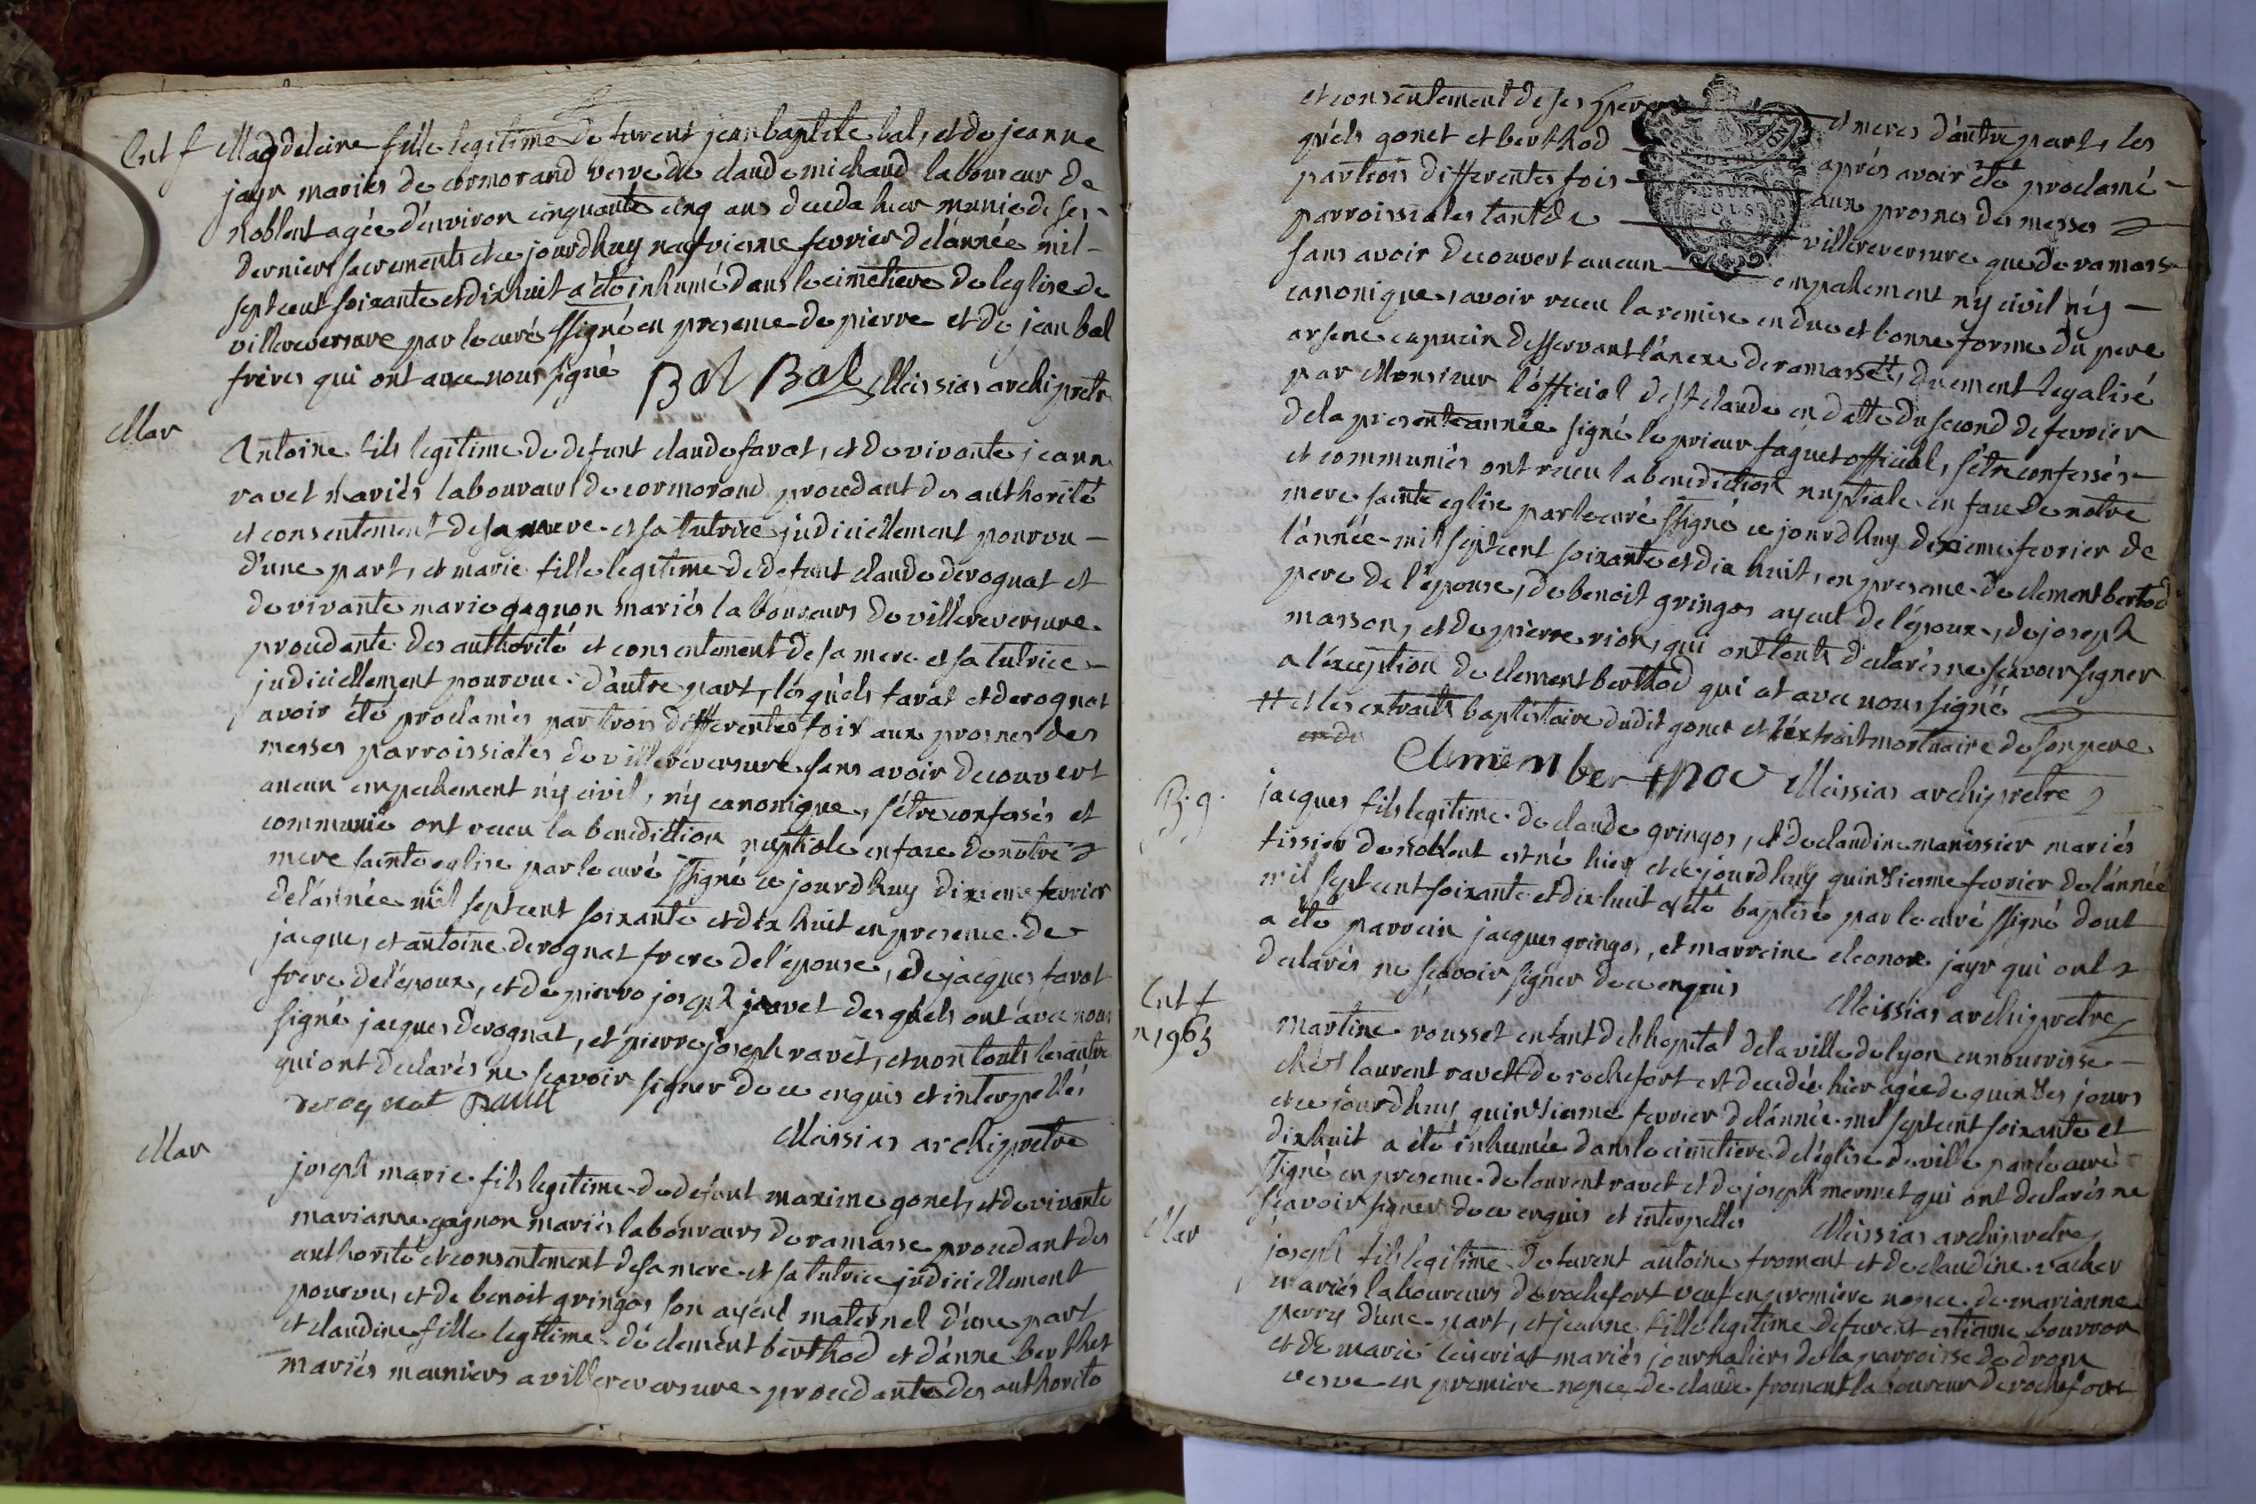 Ent f
Magdeleine fille legitime de furent jean baptiste bal, et de jeanne
jayr mariés de cormorand vesve de claude michaud laboureur de
noblent agée d'environ cinquante cinq ans deceda hier munie de ses
derniers sacrements et ce jourdhuy neufvieme fevrier de l'année mil
sept cent soixante et dix huit a été inhumé dans le cimetiere de leglise de
villereversure par le curé ssigné en presence de pierre et de jean bal
freres qui ont avec nous signé Bal Bal Meissias archipretre
Mar
Antoine fils legitime de defunt claude favat, et de vivante jeanne
ravet mariés laboureurs de cormorand procedant des authorité
et consentement de sa mere et sa tutrice judiciellement pourvu
d'une part, et marie fille legitime de defunt claude derognat et
de vivante marie gagnon mariés laboureurs de villereversure
procedante des authorité et consentement de sa mere et sa tutrice
judiciellement pourvue d'autre part, lesquels favat et derognat
avoir été proclamés par trois differentes fois aux prosnes des
messes parroissiales de villereversure sans avoir decouvert
aucun empechement ny civil, ny canonique, s'être confessés et
communié ont receu la benediction nuptiale en face de notre
mere sainte eglise par le curé ssigné ce jourdhuy dixieme fevrier
de l'année mil sept cent soixante et dix huit en presence de
jacque, et antoine derognat frere de l'épouse, de jacques favat
frere de l'époux, et de pierre joseph ravet desquels ont avec nous
signé jacques derognat, et pierre joseph ravet, et non touts les autre
qui ont declarés ne scavoir signer de ce enquis et interpellés
derognat Ravet
Meissias archipretre
Mar
joseph marie fils legitime de defunt maxime gonet, et de vivante
marianne gagnon mariés laboureurs de ramasse procedant des
authorité et consentement de sa mere et sa tutrice judiciellement
pourvu, et de benoit gringos son ayeul maternel d'une part
et claudine fille legitime de clement berthod et d'anne berthet
mariés meuniers a villereversure procedante des authorité
et consentement de ses pere et mere d'autre part, les
quels gonet et berthod après avoir été proclamé
par trois differentes fois aux prosnes des messes
parroissiales tant de villereversure que de ramasse
sans avoir decouvert aucun empechement ny civil ny
canonique, avoir receu la remise en due et bonne forme du pere
arsene capucin desservant l'anexe de ramasse #, duement legalisé
par Monsieur l'official de st claude en datte du second de fevrier
de la presente année signé le prieur faguet official, s'être confessés
et communiés ont receu la benediction nuptiale en face de notre
mere sainte eglise par le curé ssigné ce jourdhuy dixieme fevrier de
l'année mil sept cent soixante et dix huit, en presence de clement bertod
pere de l'épouse, de benoit gringos ayeul de l'époux, de joseph
masson, et de pierre rion, qui ont touts declarés ne scavoir signer
a l'exception de clement berthod qui at avec nous signé
# et les extraits baptistaire dudit gonet et l'extrait mortuaire de son pere
Meissias archipretre
B. g.
jacques fils legitime de claude gringos, et de claudine manissier mariés
tissier de noblent est né hier et ce jourdhuy quinzieme fevrier de l'année
mil sept cent soixante et dix huit a été baptisé par le curé ssigné dont
a été parrein jacques gringos, et marreine eleonore jayr qui ont
declarés ne scavoir signer de ce enquis
Meissias archipretre
Ent f
n 1963
martine rousset enfant de l'hopital de la ville de lyon en nourrisse
chez laurent ravet de rochefort est decedée hier agée de quinzes jours
et ce jourdhuy quinzieme fevrier de l'année mil sept cent soixante et
dix huit a été inhumée dans le cimetiere de l'église de ville par le curé
ssigné en presence de laurent ravet et de joseph mermet qui ont declarés ne
scavoir signer de ce enquis et interpellés
Meissias archipretre
Mar
joseph fils legitime de furent antoine froment et de claudine vacher
mariés laboureurs de rochefort veuf en premiere nopce de marianne
perry d'une part, et jeanne fille legitime de furent estienne bourron
et de marie mariés journaliers de la parroisse de drom
vesve en premiere nopce de claude froment laboureur de rochefort